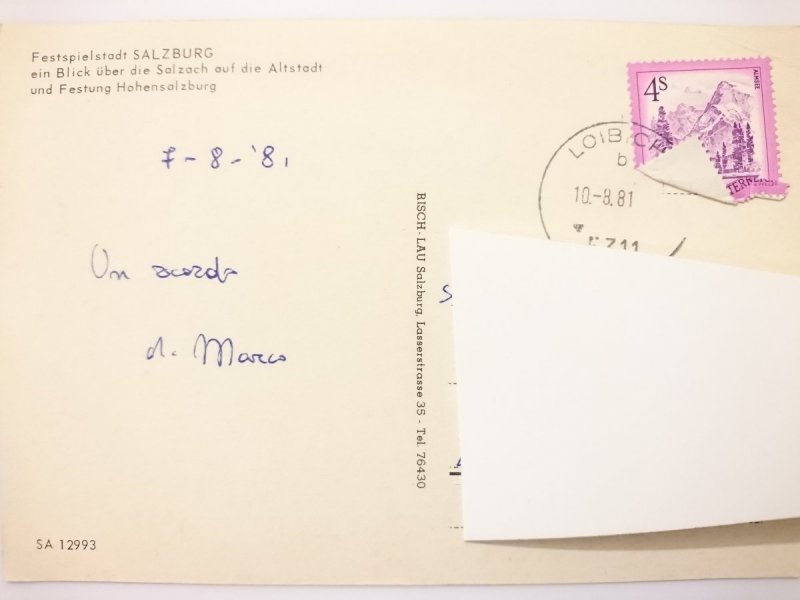 Festspielstadt SALZBURG
ein Blick über die Salzach auf die Altstadt
und Festung Hohensalzburg
7-8-'81
Un
di Marco
RISCH-LAU Salzburg, Lasserstrasse 35 - Tel. 76430
SA 12993
4S
ALMSEE
LOIB
b
10.-8.81